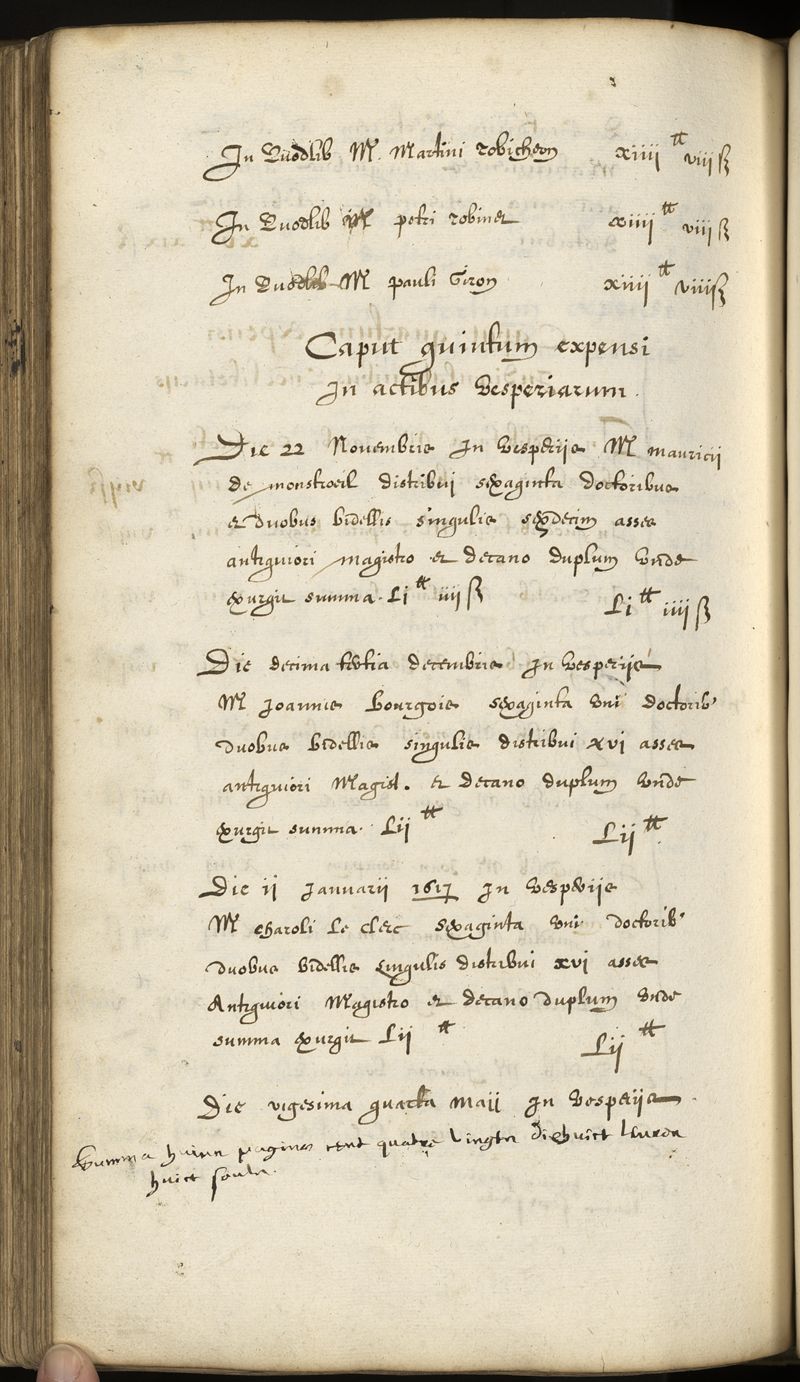 In Quodlib M. Martini robicheon xiiii tt viii ß
In Quodlib M petri robinet xiiii tt viii ß
In Quodlib M pauli Giron xiiij tt viii ß
Caput quintum expensi
In actibus Vesperiarum.
Die 22 Novembris In Vesperijs M mauricij
de monstroeil distribui sexaginta doctoribus
et duobus bidellis singulis sexdecim asses
antiquiori magistro et decano duplum Unde
exurgit summa. Li tt iiij ß Li tt iiij ß
Die decima tertia decembris In Vesperijs
M Joannis Bourgois sexaginta Uni doctorib'
duobus bidellis singulis distribui xvi asses
antiquiori Magist. et decano duplum Unde
exurgit summa. Lij tt Lij tt.
Die ij Januarij 1617 In Vesperijs
M Charoli Le Clerc sexaginta Uni doctorib'
duobus bidellis singulis distribui xvi asses
Antiquiori Magistro et decano duplum Unde
summa exurgit Lij tt Lij tt
Die vigesima quarta Maij In Vesperijs.
Summa huius paginæ cent quatre Vingts dixhuict Livres
huict soulz.